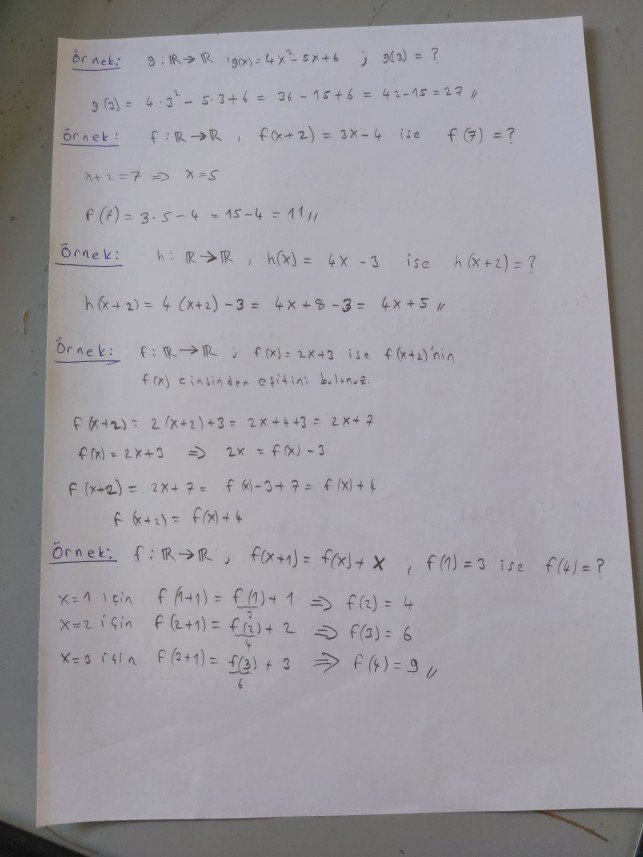 Örnek: g: ℝ→ℝ g(x) = 4x² - 5x + 6 ; g(3) = ?
g(3) = 4·3² - 5·3 + 6 = 36 - 15 + 6 = 42 - 15 = 27 //
Örnek: f: ℝ→ℝ, f(x+2) = 3x - 4 ise f(7) = ?
x + 2 = 7 ⇒ x = 5
f(7) = 3·5 - 4 = 15 - 4 = 11 //
Örnek: h: ℝ→ℝ, h(x) = 4x - 3 ise h(x+2) = ?
h(x+2) = 4(x+2) - 3 = 4x + 8 - 3 = 4x + 5 //
Örnek: f: ℝ→ℝ ; f(x) = 2x+3 ise f(x+2)'nin
f(x) cinsinden eşitini bulunuz.
f(x+2) = 2(x+2)+3 = 2x+4+3 = 2x+7
f(x) = 2x+3 ⇒ 2x = f(x) - 3
f(x+2) = 2x+7 = f(x)-3+7 = f(x)+4
f(x+2) = f(x)+4
Örnek: f: ℝ→ℝ, f(x+1) = f(x) + x, f(1) = 3 ise f(4) = ?
x=1 için f(1+1) = f(1) + 1 ⇒ f(2) = 4
3
x=2 için f(2+1) = f(2) + 2 ⇒ f(3) = 6
4
x=3 için f(3+1) = f(3) + 3 ⇒ f(4) = 9 //
6